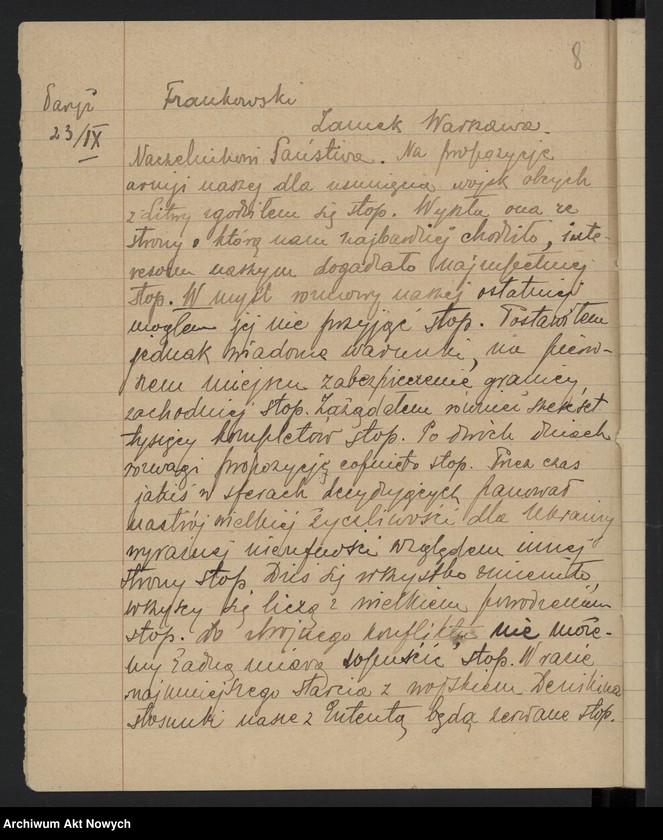 8
Paryż
23/IX
Frankowski
Zamek Warszawa.
Naczelnikowi Państwa. Na propozycję
armji naszej dla usunięcia wojsk obcych
z Litwy zgodziłem się stop. Wyszła ona ze
strony o którą nam najbardziej chodziło, inte-
resom naszym dogadzało najzupełniej
stop. W myśl rozmowy naszej ostatniej
mogłem jej nie przyjąć stop. Postawiłem
jednak wiadome warunki, na pierw-
szem miejscu zabezpieczenie granicy
zachodniej stop. Zażądałem również sześćset
tysięcy kompletów stop. Po dwóch dniach
rozwagi propozycję cofnięto stop. Przez czas
jakiś w sferach decydujących panował
nastrój wielkiej życzliwości dla Ukrainy
wyraźnej nieufności względem innej
strony stop. Dziś się wszystko zmieniło,
wszyscy się liczą z wielkiem powodzeniem
stop. do zbrojnego konfliktu nie może-
my żadną miarą dopuścić stop. W razie
najmniejszego starcia z wojskiem Denikina
stosunki nasze z Ententą będą zerwane stop.
Archiwum Akt Nowych